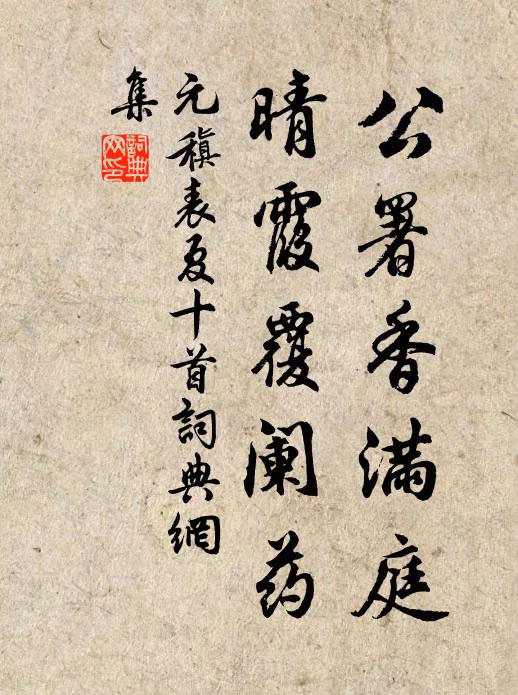 公署香满庭
晴霞覆阑药
元稹表夏十首詞典網
集
詞典
网印